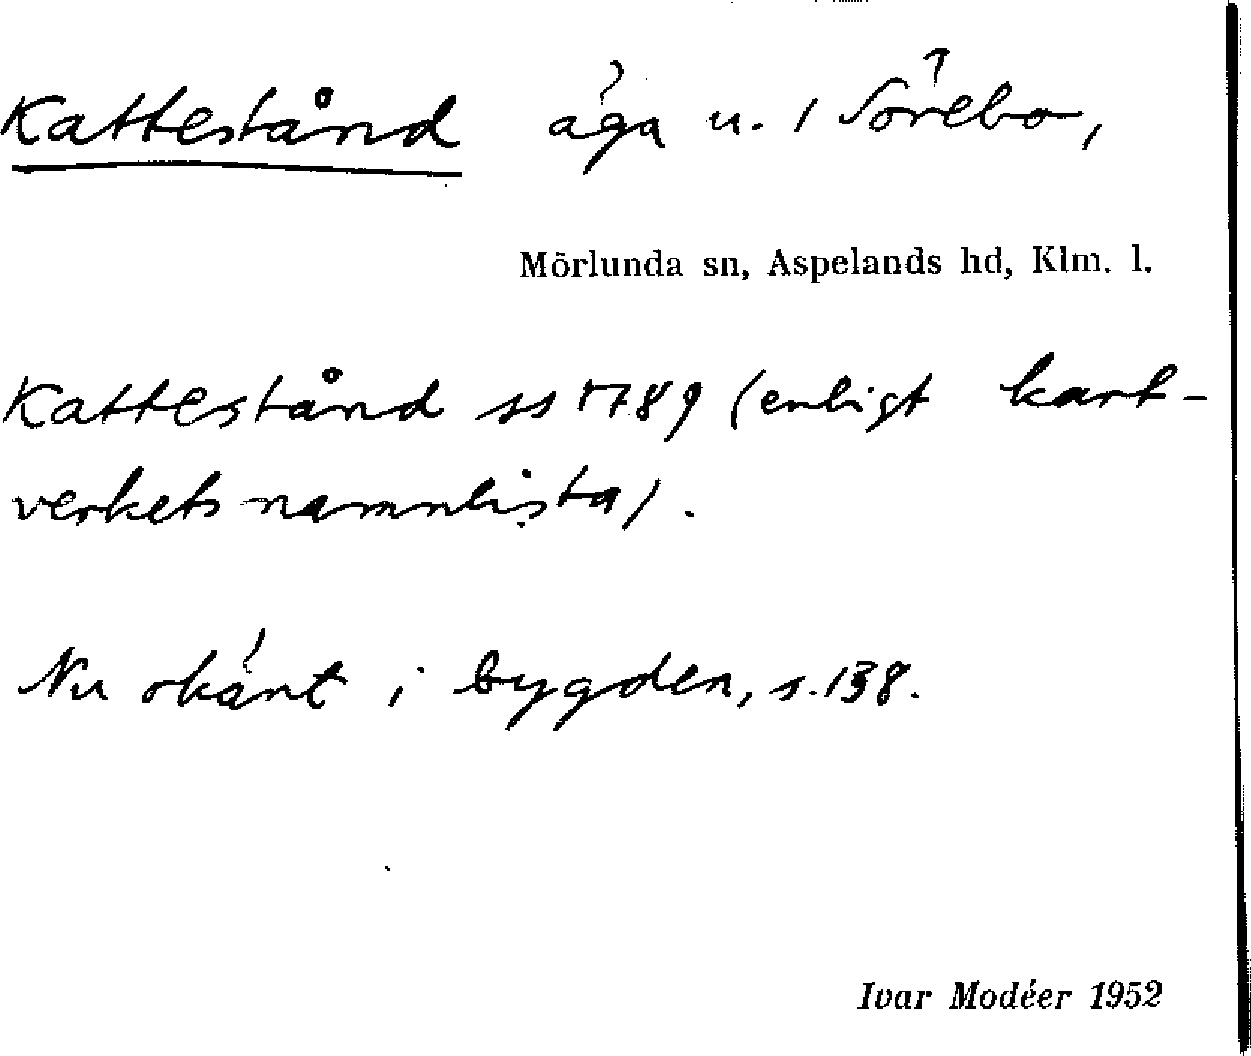 Kattestånd äga u. 1 Sörebo,
Mörlunda sn, Aspelands hd, Klm. l.
Kattestånd ss 1789 (enligt kart-
verkets namnlista).
Nu okänt i bygden, s. 138.
Ivar Modéer 1952